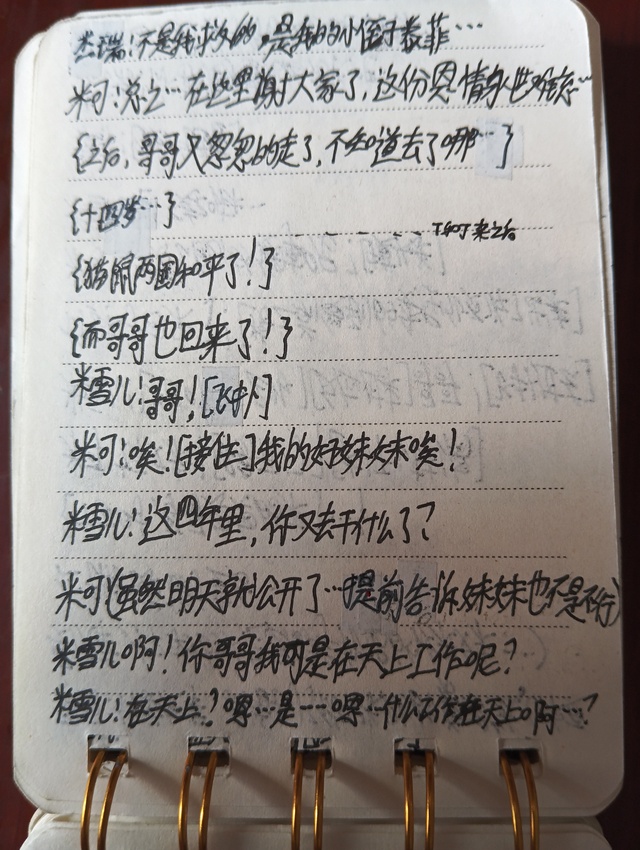 杰瑞:不是我救的,是我的小侄子泰菲…
米可:总之…在这里谢大家了,这份恩情永世难忘…
{之后,哥哥又忽忽的走了,不知道去了哪…}
{十四岁…}
来之后
{猫鼠两国和平了!}
{而哥哥也回来了!}
米雪儿:哥哥![飞扑]
米可:唉![接住]我的好妹妹唉!
米雪儿:这四年里,你又去干什么了?
米可(虽然明天就公开了…提前告诉妹妹也不是不行)
米雪儿啊!你哥哥我可是在天上工作呢?
米雪儿:在天上?嗯…是……嗯…什么工作在天上啊…?